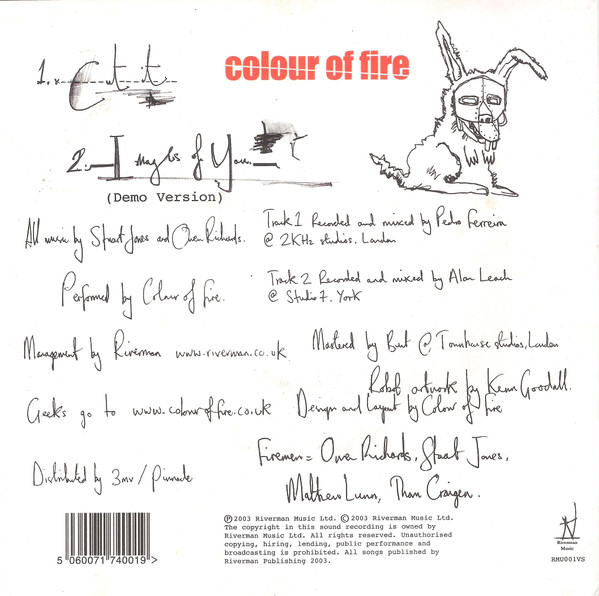 1. Cut it
colour of fire
2. Images of You.
(Demo Version)
All music by Stuart Jones and Owen Richards.
Track 1 Recorded and mixed by Pedro Ferreira
@ 2KHz studios, London
Performed by Colour of fire.
Track 2 Recorded and mixed by Alan Leach
@ Studio 7, York
Management by Riverman www.riverman.co.uk
Mastered by Bunt @ Townhouse studios, London
Robof artwork by Kenn Goodall.
Geeks go to www.colouroffire.co.uk
Design and Layout by Colour of Fire
Firemen = Owen Richards, Stuart Jones,
Matthew Lunn, Tham Craigen.
Distributed by 3mv / Pinnacle
5 060071 740019 >
Ⓟ 2003 Riverman Music Ltd. © 2003 Riverman Music Ltd.
The copyright in this sound recording is owned by
Riverman Music Ltd. All rights reserved. Unauthorised
copying, hiring, lending, public performance and
broadcasting is prohibited. All songs published by
Riverman Publishing 2003.
Riverman
Music
RMU001VS